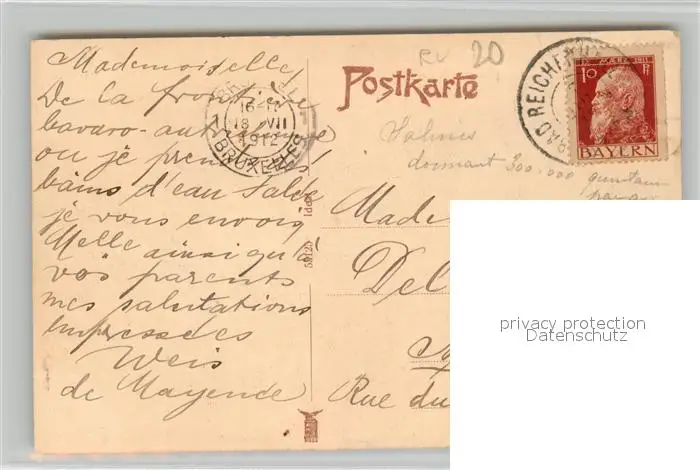 Mademoiselle,
De la frontière
bavaro-autrichienne
ou je prends des
bains d'eau salée
je vous envoie
Melle ainsi qu'à
vos parents
mes salutations
empressées
Weis
de Mayence
RV 20
Postkarte
BRUXELLES
16-17
18 VII
1912
BRUXELLES
1
BAD REICHENH
12. MÄRZ 1911
10 Pf
BAYERN
Salines
donnant 300.000 quintaux
par an
Made
Del
Rue du
privacy protection
Datenschutz